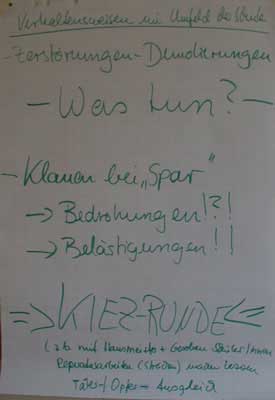 Verhaltensweisen im Umfeld der Schule
- Zerstörungen - Demolierungen
- Was tun? -
- Klauen bei „Spar"
→ Bedrohungen!?!
→ Belästigungen!!
=> KIEZ-RUNDE <=
( z.B. mit Hausmeister + Schüler/innen
Reparaturarbeiten machen lassen
Täter-/Opfer- Ausgleich